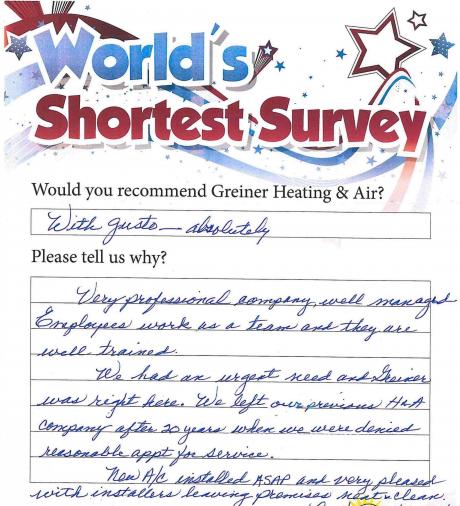 World's
Shortest Survey
Would you recommend Greiner Heating & Air?
With gusto — absolutely
Please tell us why?
Very professional company, well managed
Employees work as a team and they are
well trained.
We had an urgent need and Greiner
was right here. We left our previous H&A
company after 20 years when we were denied
reasonable appt for service.
New A/C installed ASAP and very pleased
with installers leaving premises neat & clean.